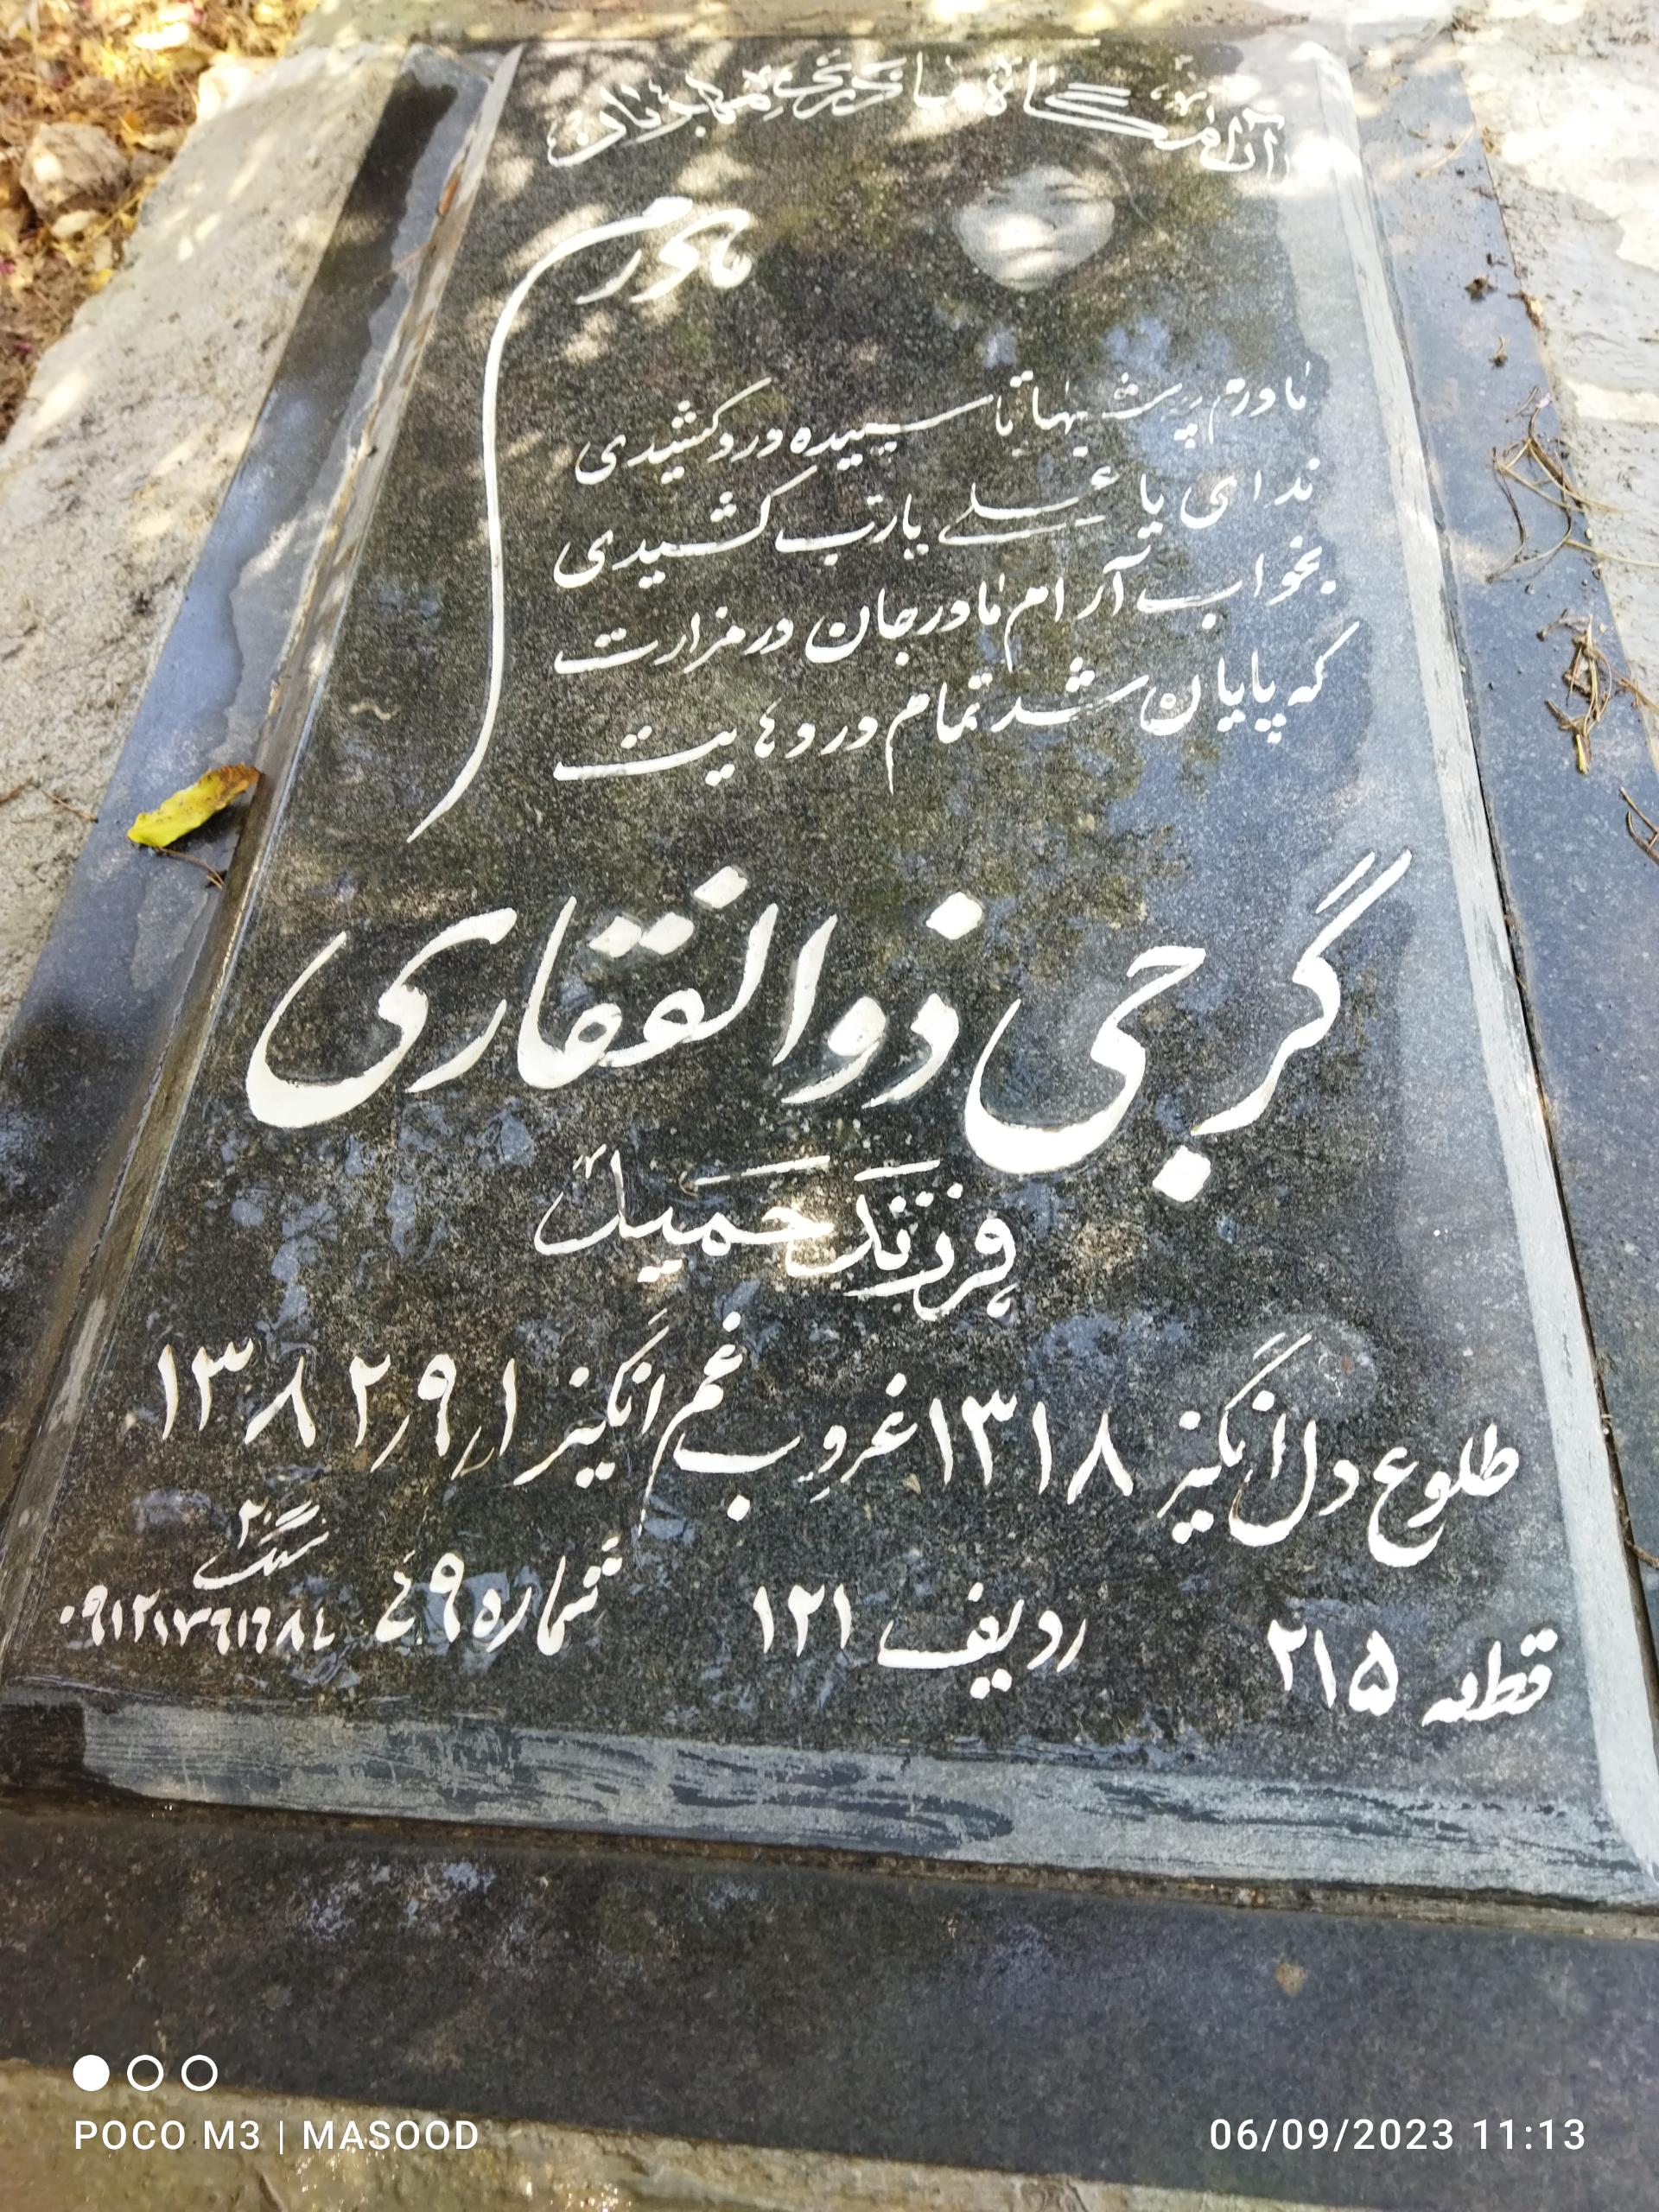 آرامگاه مادری مهربان
مادرم
مادرم پر شبها تا سپیده درد کشیدی
ندای یا علی یارب کشیدی
بخواب آرام مادر جان در مزارت
که پایان شد تمام دردهایت
گرجی ذوالفقاری
فرزند حمید
طلوع دل انگیز ۱۳۱۸ غروب غم انگیز ۱ر۹ر۱۳۸۲
قطعه ۲۱۵ ردیف ۱۲۱ شماره ۴۹
سنگ ۲۰
POCO M3 | MASOOD
06/09/2023 11:13